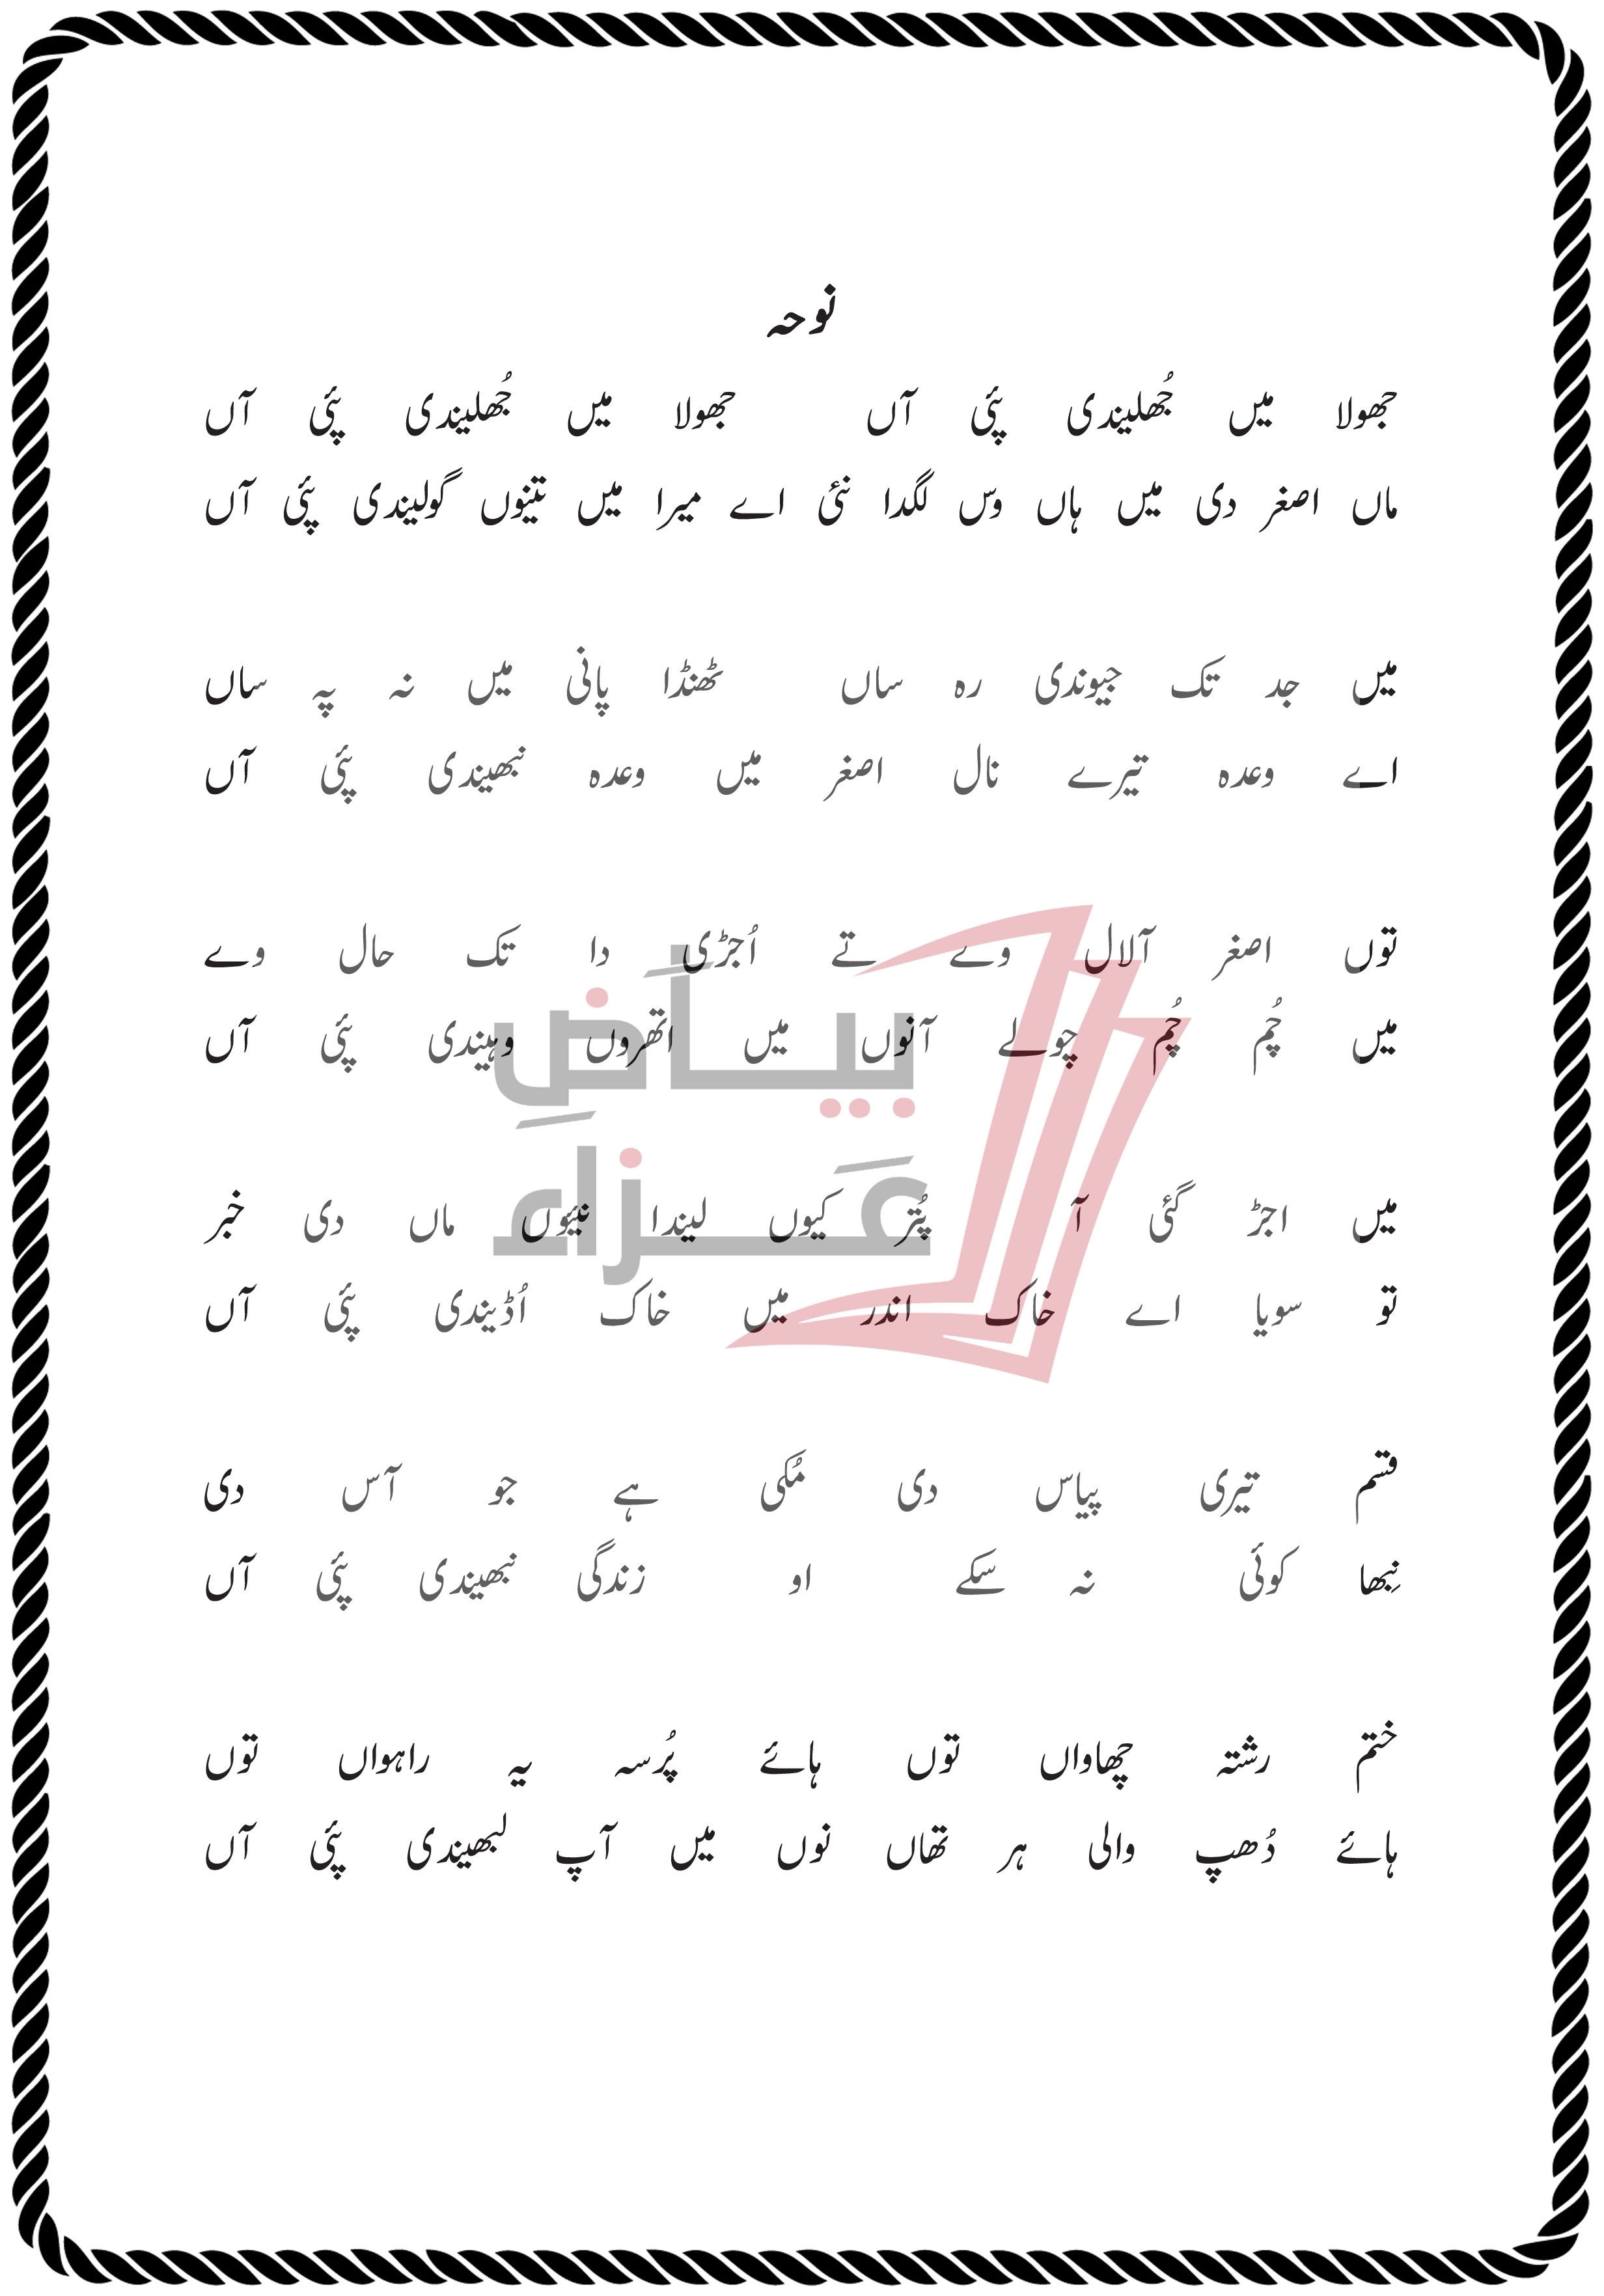 نوحہ
جھولا میں جُھلیندی پئی آں جھولا میں جُھلیندی پئی آں
ماں اصغر دی میں ہاں وس لگدا نئی اے میرا میں تینوں گولیندی پئی آں
میں جد تک جیوندی رہ ساں ٹھنڈا پانی میں نہ پہ ساں
اے وعدہ تیرے نال اصغر میں وعدہ نبھیندی پئی آں
توں اصغر آلال وے تے اُجڑی دا تک حال وے
میں چُم چُم چولے آنوں میں اتھروں وہیندی پئی آں
میں اجڑ گئی آ پُتر کیوں لیندا نیوں ماں دی خبر
تو سویا اے خاک اندر میں خاک اُڈیندی پئی آں
قسم تیری پیاس دی مُکی ہے جو آس دی
نِبھا کوئی نہ سکے او زندگی نبھیندی پئی آں
ختم رشتہ چھاواں توں ہائے پُرسہ یہ راہواں توں
ہائے دُھپ والی ہر تھاں نوں میں آپ لبھیندی پئی آں
بیاضِ
عزاء